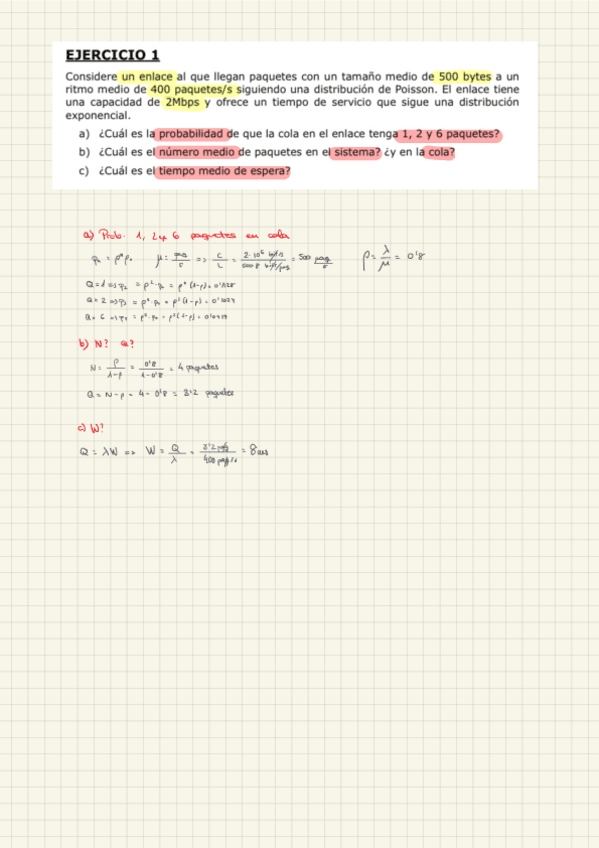 EJERCICIO 1
Considere un enlace al que llegan paquetes con un tamaño medio de 500 bytes a un
ritmo medio de 400 paquetes/s siguiendo una distribución de Poisson. El enlace tiene
una capacidad de 2Mbps y ofrece un tiempo de servicio que sigue una distribución
exponencial.
a) ¿Cuál es la probabilidad de que la cola en el enlace tenga 1, 2 y 6 paquetes?
b) ¿Cuál es el número medio de paquetes en el sistema? ¿y en la cola?
c) ¿Cuál es el tiempo medio de espera?
a) Prob. 1, 2 y 6 paquetes en cola
μ = paq/s => C/L = = 500 paq/s ρ = λ/μ = 0'8
Q=1 => p₂ = ρ²·p₀ = ρ²(1-ρ) = 0'128
Q=2 => p₃ = ρ³·p₀ = ρ³(1-ρ) = 0'1024
b) N? Q?
N = ρ/1-ρ = 0'8/1-0'8 = 4 paquetes
Q = N-ρ = 4-0'8 = 3'2 paquetes
c) W?
Q = λW => W = Q/λ = 3'2 paq/400 paq/s = 8ms